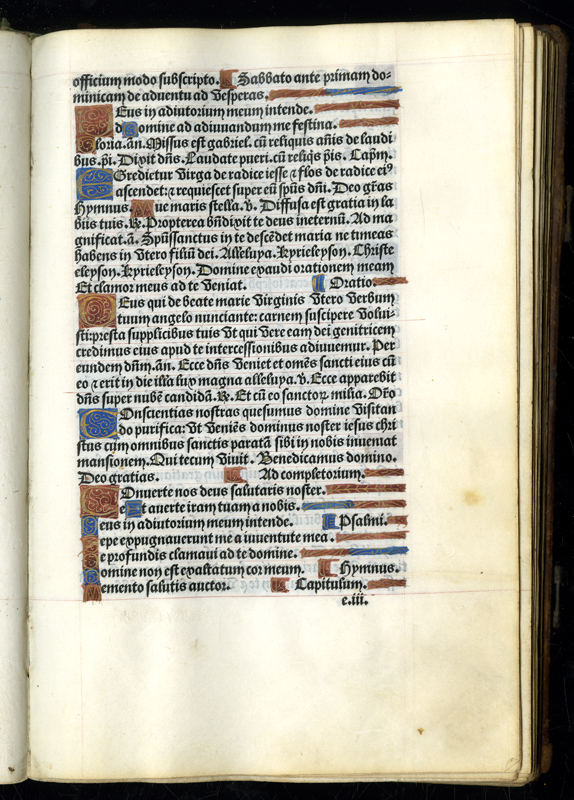 officium modo subscripto. C Sabbato ante primam do-
minicam de aduentu ad Vesperas.
DEus in adiutorium meum intende.
Domine ad adiuuandum me festina.
Gloria.an̄.Missus est gabriel.cū reliquis an̄is de laudi
bus.p̄i.Dixit dn̄s.Laudate pueri.cū reliq̄s p̄is. Cap̄m.
EGredietur Virga de radice iesse ⁊ flos de radice eiꝰ
ascendet:⁊ requiescet super eū sp̄us dn̄i. Deo gr̄as
Hymnus. Aue maris stella.v̄. Diffusa est gratia in la
biis tuis.R̄.Propterea bn̄dixit te deus ineternū. Ad ma
gnificat.ā. Sp̄ussanctus in te descēdet maria ne timeas
habens in Vtero filiū dei. Alleluya.Kyrieleyson. Christe
eleyson.Kyrieleyson. Domine exaudi orationem meam
Et clamor meus ad te Veniat. Oratio.
DEus qui de beate marie Virginis Vtero Verbum
tuum angelo nunciante: carnem suscipere Volui-
sti:presta supplicibus tuis Vt qui Vere eam dei genitricem
credimus eius apud te intercessionibus adiuuemur. Per
eundem dn̄m.an̄. Ecce dn̄s Veniet et om̄es sancti eius cū
eo ⁊ erit in die illa lux magna alleluya.v̄. Ecce apparebit
dn̄s super nubē candidā.R̄. Et cū eo sanctoꝝ milia. Or̄o
COnscientias nostras quesumus domine Visitan
do purifica:Vt Veniēs dominus noster iesus chri
stus cum omnibus sanctis paratā sibi in nobis inueniat
mansionem.Qui tecum Viuit. Benedicamus domino.
Deo gratias. Ad completorium.
COnuerte nos deus salutaris noster.
Et auerte iram tuam a nobis.
Deus in adiutorium meum intende. Psalmi.
Sepe expugnauerunt me a iuuentute mea.
De profundis clamaui ad te domine.
Domine non est exaltatum cor meum. Hymnus.
Memento salutis auctor. Capitulum.
e.iii.